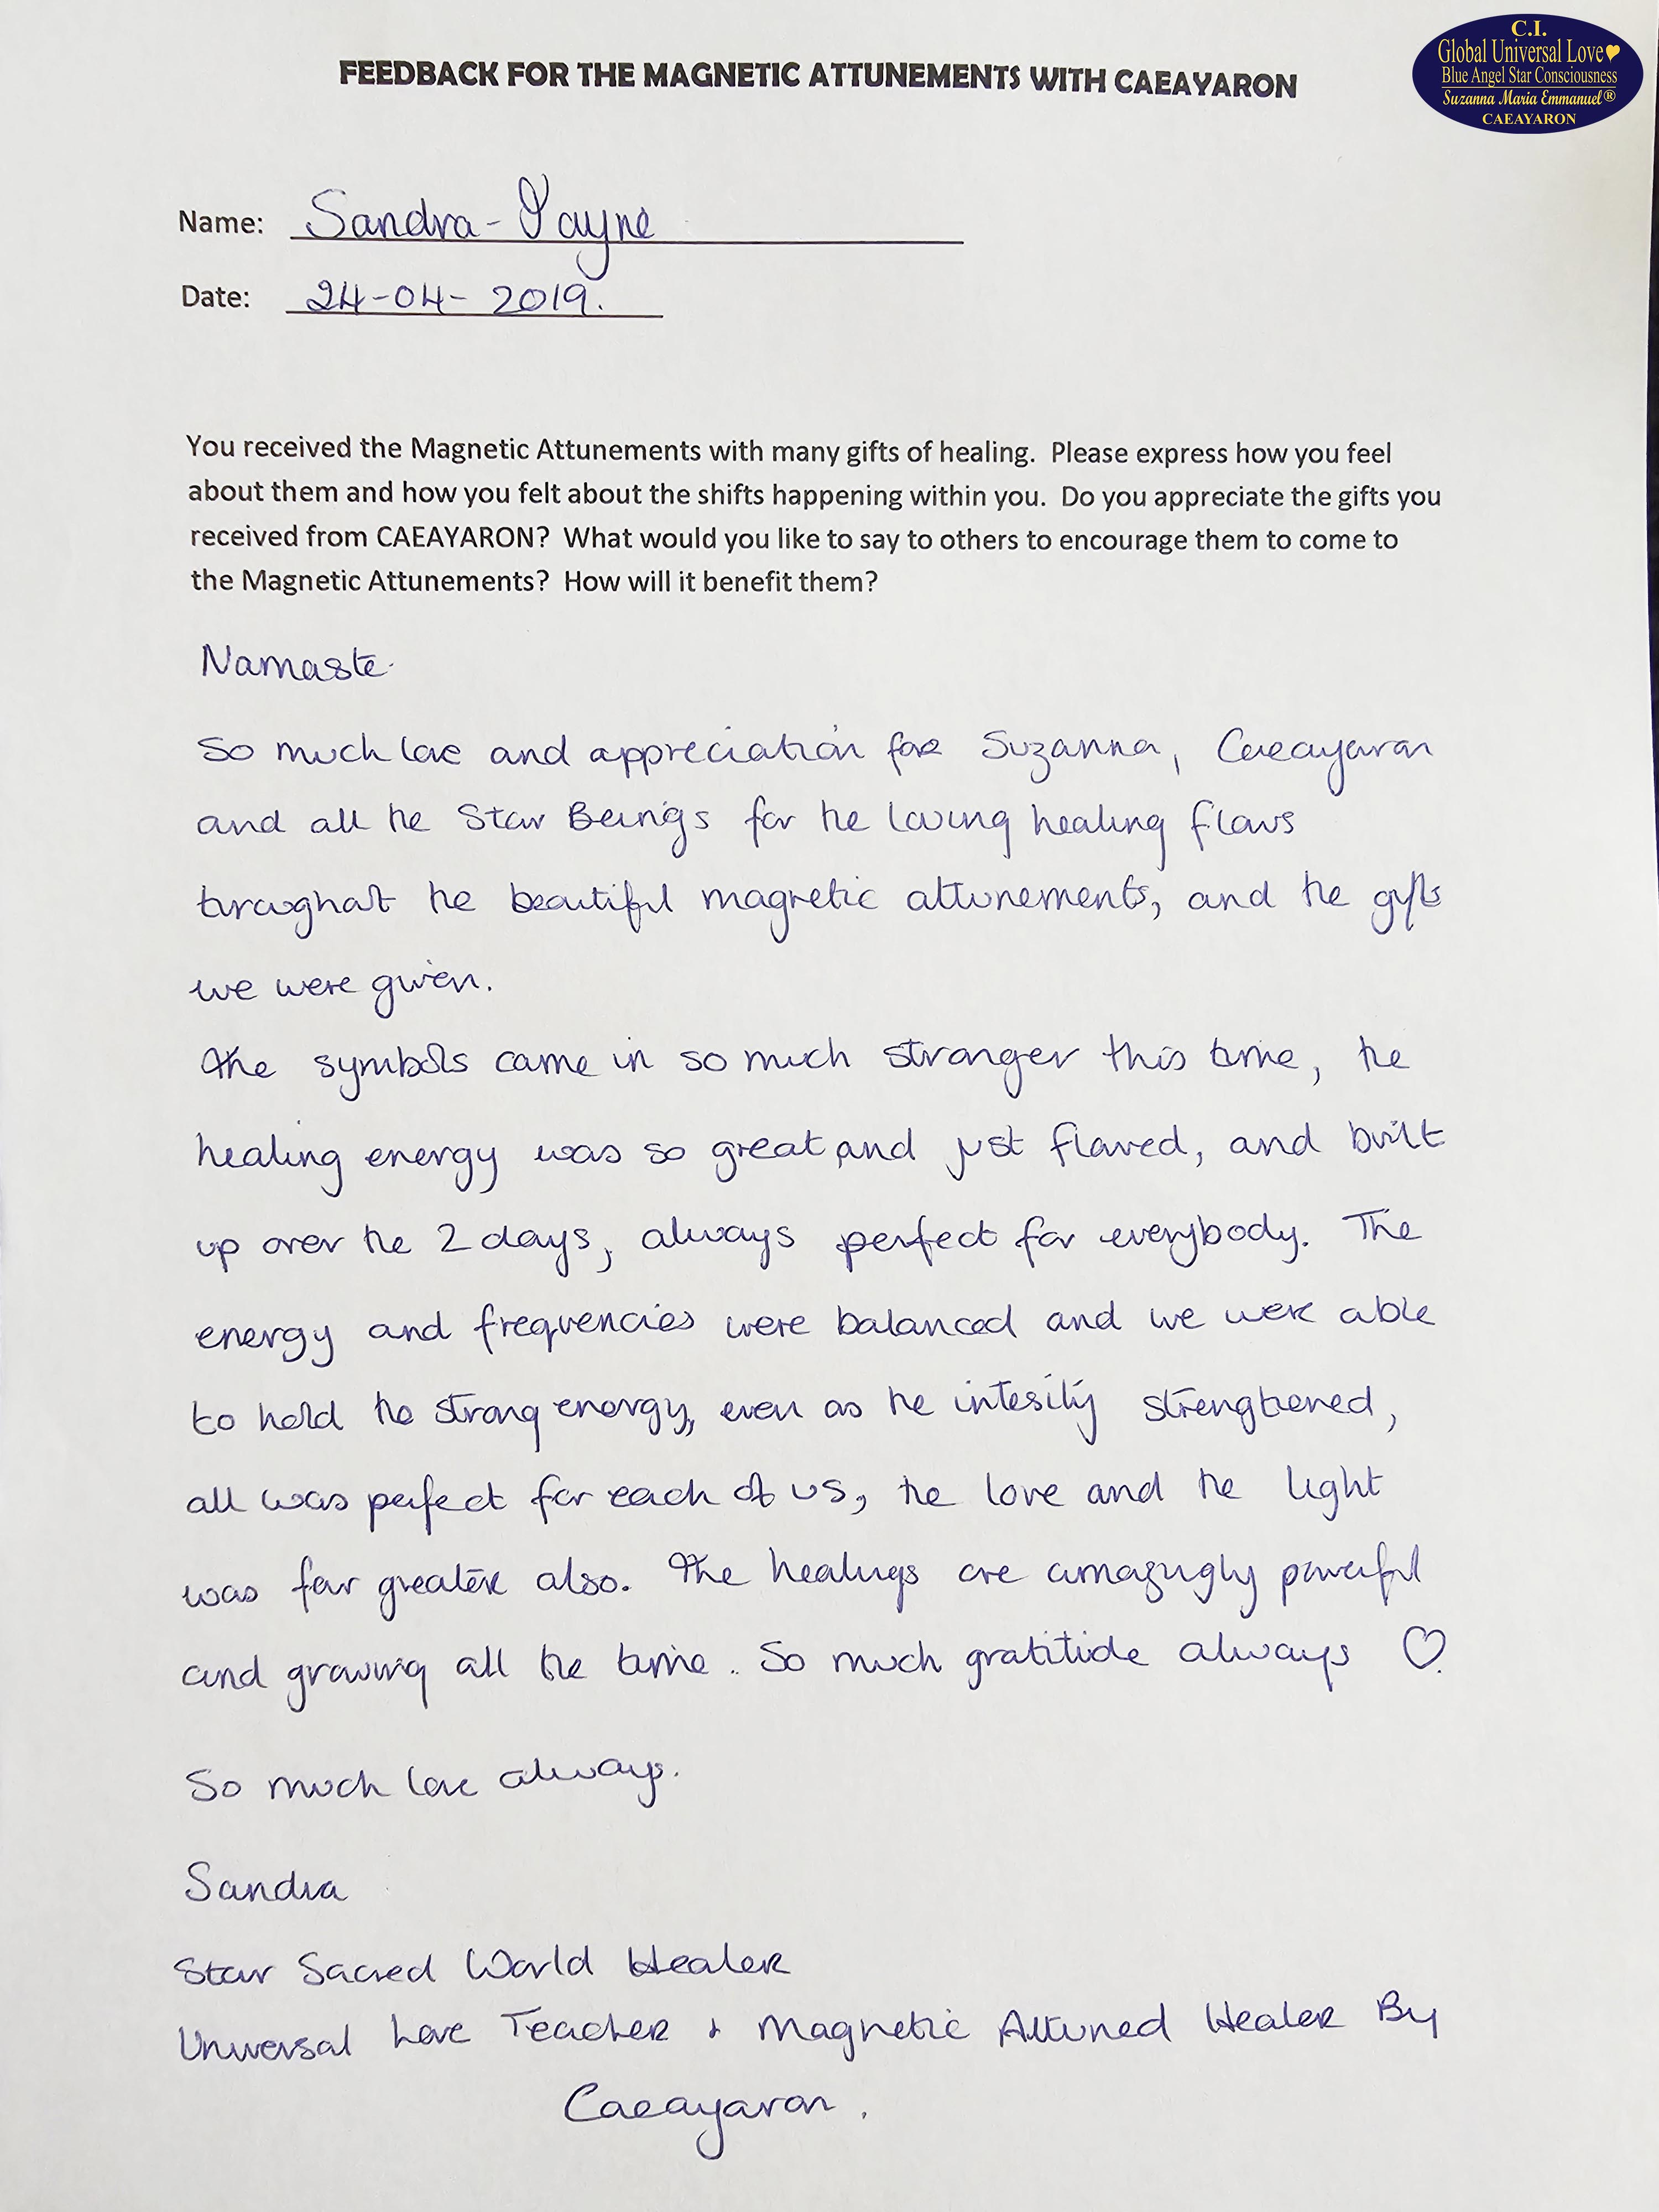 C.I.
Global Universal Love♥
Blue Angel Star Consciousness
Suzanna Maria Emmanuel®
CAEAYARON
FEEDBACK FOR THE MAGNETIC ATTUNEMENTS WITH CAEAYARON
Name: Sandra-Payne
Date: 24-04-2019.
You received the Magnetic Attunements with many gifts of healing. Please express how you feel
about them and how you felt about the shifts happening within you. Do you appreciate the gifts you
received from CAEAYARON? What would you like to say to others to encourage them to come to
the Magnetic Attunements? How will it benefit them?
Namaste
So much love and appreciation for Suzanna, Caeayaron
and all the Star Beings for the loving healing flows
throughout the beautiful magnetic attunements, and the gifts
we were given.
The symbols came in so much stronger this time, the
healing energy was so great and just flowed, and built
up over the 2 days, always perfect for everybody. The
energy and frequencies were balanced and we were able
to hold the strong energy, even as the intesity strengthened,
all was perfect for each of us, the love and the light
was far greater also. The healings are amazingly powerful
and growing all the time. So much gratitude always ♡.
So much love always.
Sandra
Star Sacred World Healer
Universal Love Teacher & Magnetic Attuned Healer By
Caeayaron.